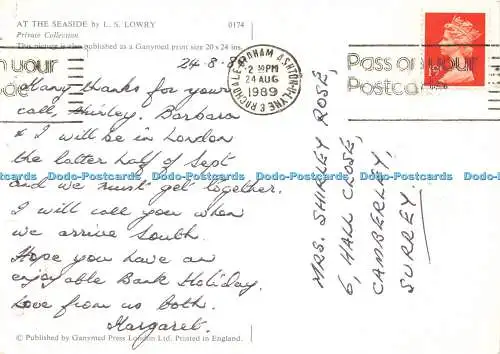 AT THE SEASIDE by L. S. LOWRY 0174
Private Collection
This picture is also published as a Ganymed print size 20 x 24 ins.
24-8-89
Many thanks for your
call, Shirley. Barbara
& I will be in London
the latter half of Sept
and we must get together.
I will call you when
we arrive South.
Hope you have an
enjoyable Bank Holiday.
Love from us both.
Margaret.
© Published by Ganymed Press London Ltd. Printed in England.
OLDHAM ASHTON-U-LYNE & ROCHDALE
2 30PM
24 AUG
1989
Pass on your
Postcode
1st
MRS. SHIRLEY ROSE,
6, HALL CLOSE,
CAMBERLEY,
SURREY.
Dodo-Postcards Dodo-Postcards Dodo-Postcards Dodo-Postcards